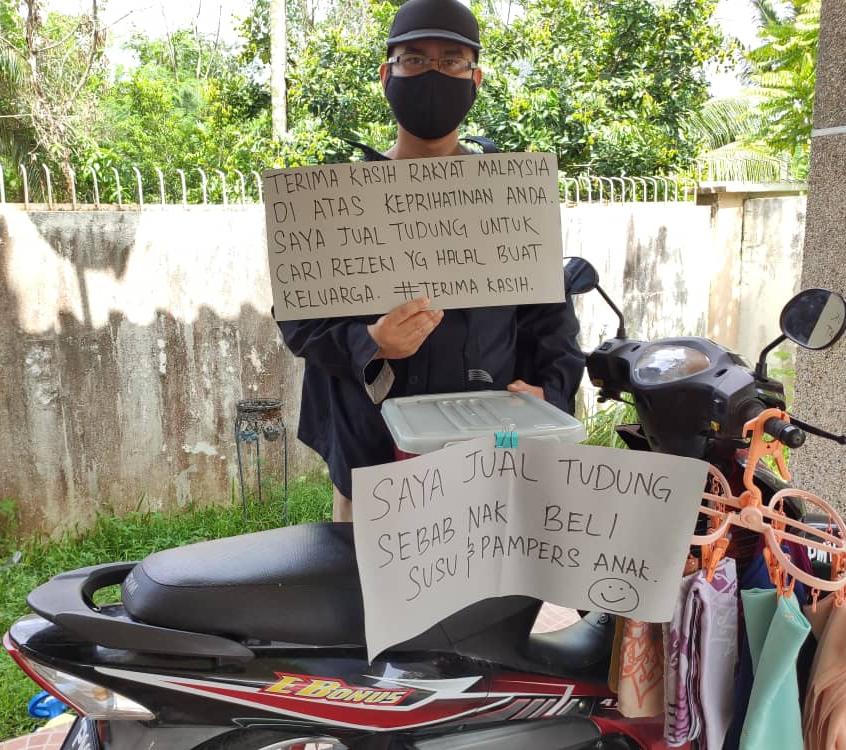 TERIMA KASIH RAKYAT MALAYSIA
DI ATAS KEPRIHATINAN ANDA.
SAYA JUAL TUDUNG UNTUK
CARI REZEKI YG HALAL BUAT
KELUARGA. #TERIMA KASIH.
SAYA JUAL TUDUNG
SEBAB NAK BELI
SUSU & PAMPERS ANAK.
E-BONUS